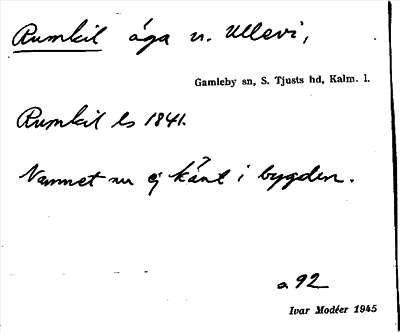 Rumkil äga n. Ullevi,
Gamleby sn, S. Tjusts hd, Kalm. l.
Rumkil ls 1841.
Namnet nu ej känt i bygden.
a 92
Ivar Modéer 1945